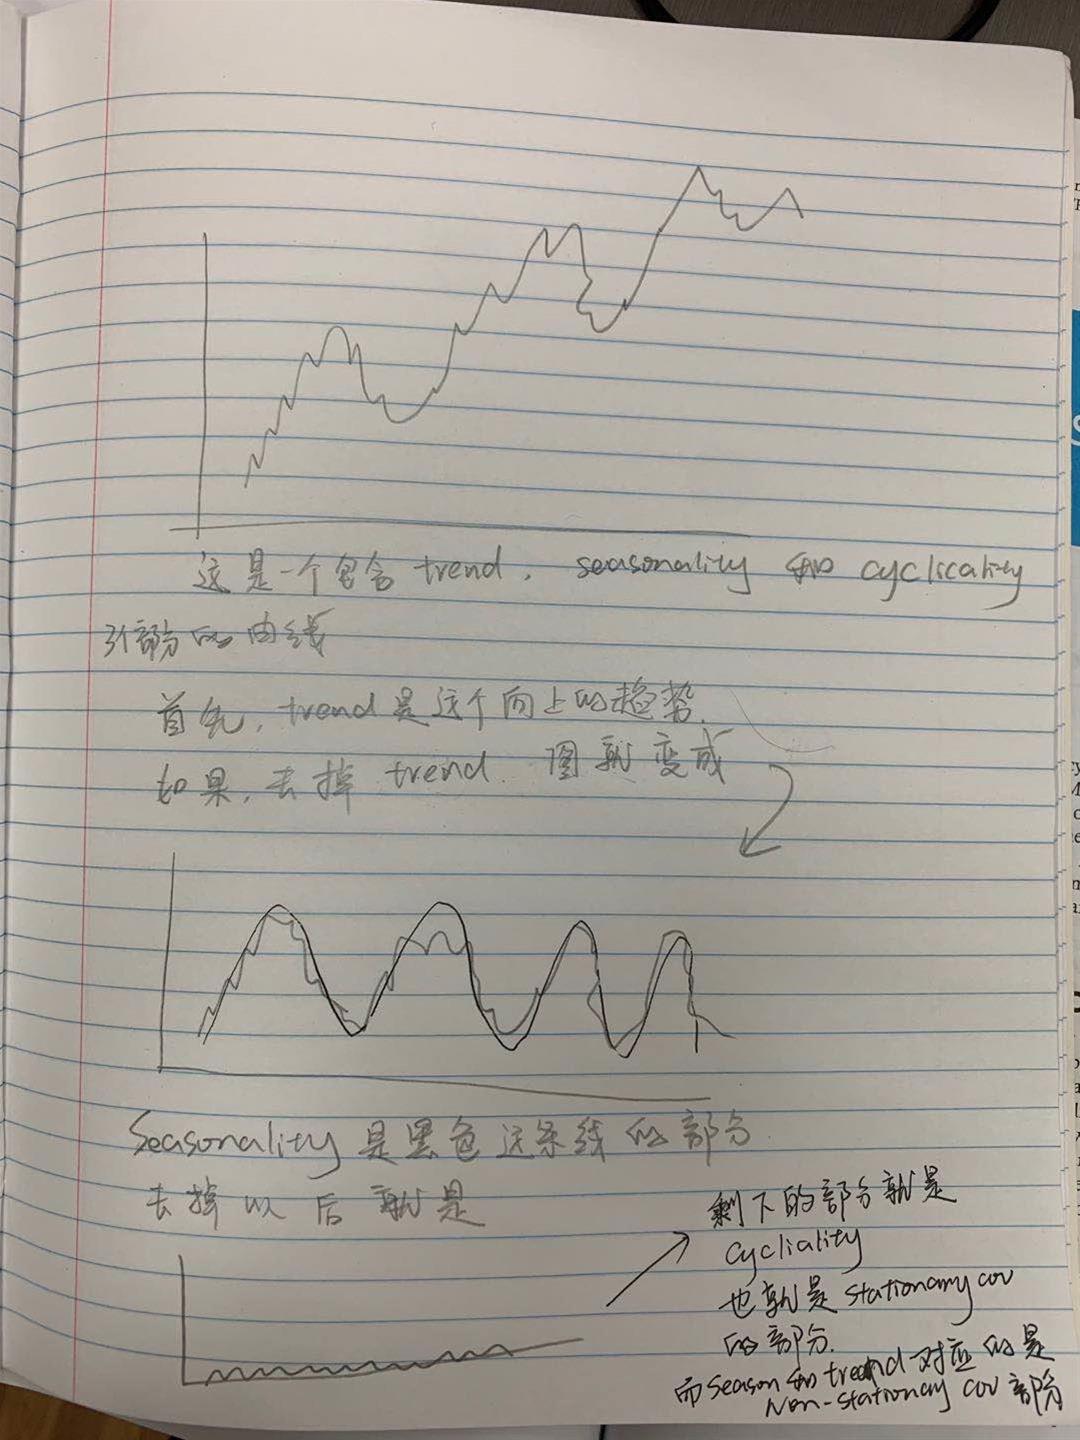 这是一个包含 trend, seasonality 和 cyclicality
3个部分的曲线
首先, trend 是这个向上的趋势.
如果, 去掉 trend. 图就变成
Seasonality 是黑色这条线的部分
去掉以后就是
剩下的部分就是
cycliality
也就是 stationary cov
的部分.
而 season 和 trend 对应的是
Non-stationary cov 部分